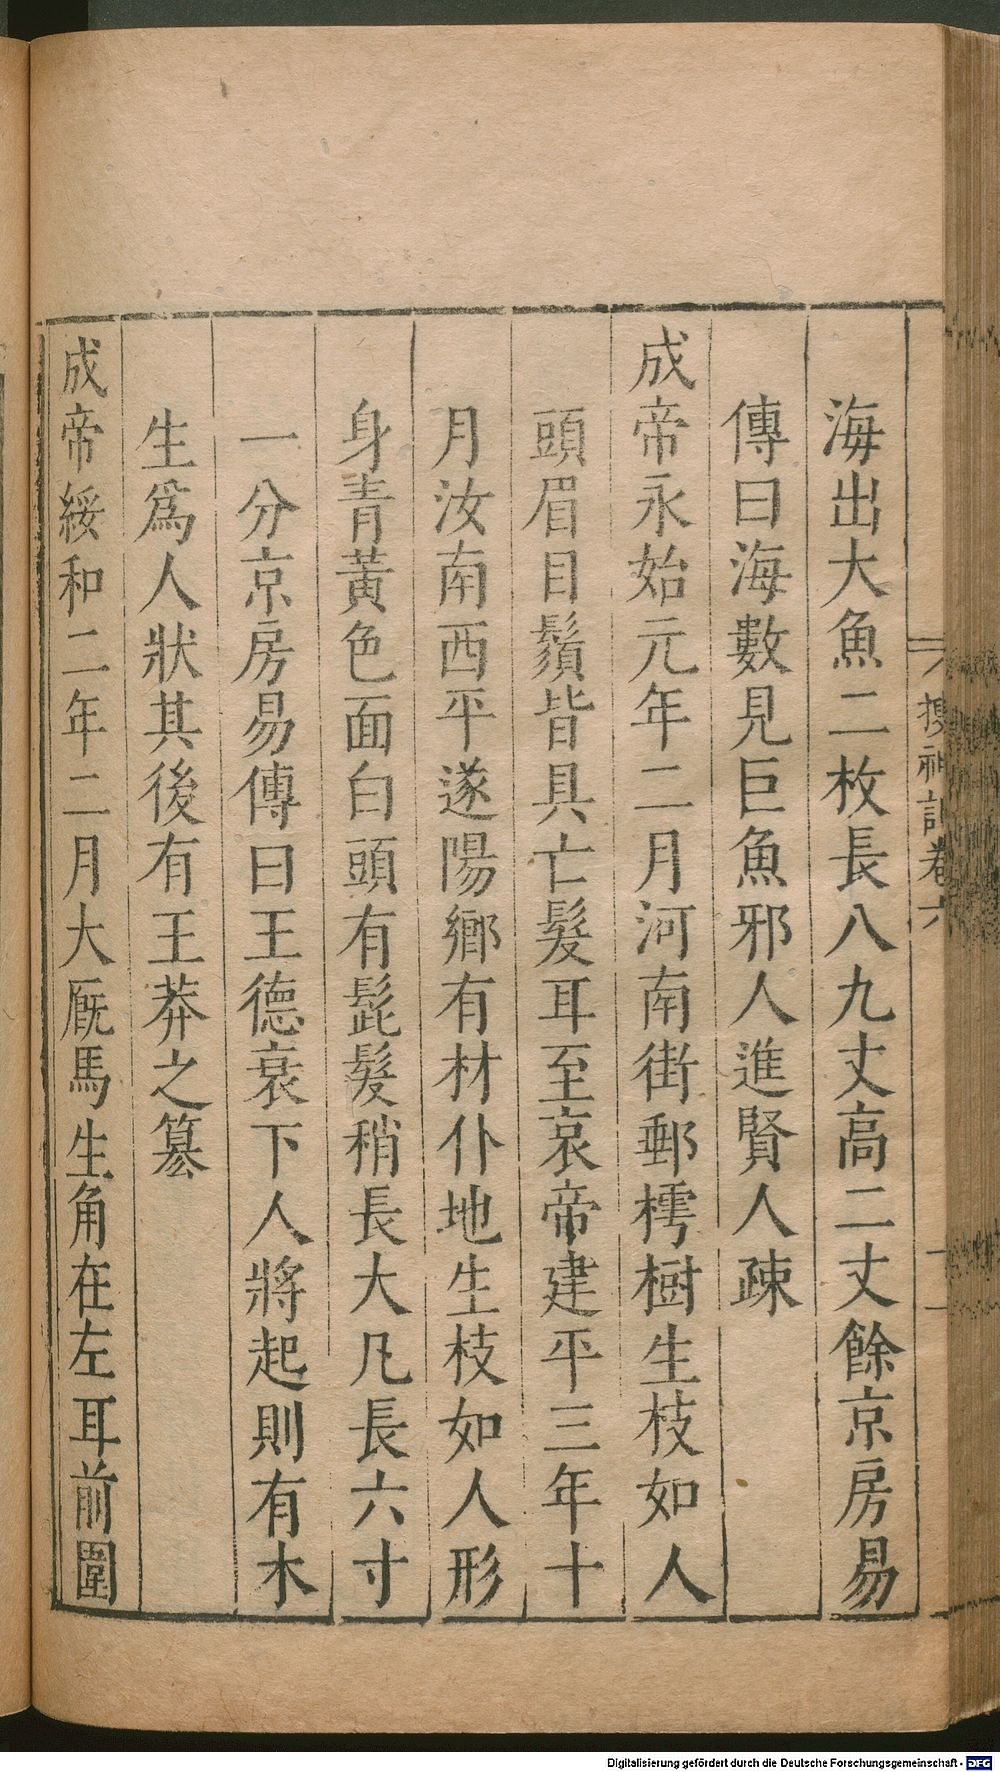 搜神記卷六
海出大魚二枚長八九丈高二丈餘京房易
傳曰海數見巨魚邪人進賢人疎
成帝永始元年二月河南街郵樗樹生枝如人
頭眉目鬚皆具亡髮耳至哀帝建平三年十
月汝南西平遂陽鄉有材仆地生枝如人形
身青黃色面白頭有髭髮稍長大凡長六寸
一分京房易傳曰王德衰下人將起則有木
生爲人狀其後有王莽之篡
成帝綏和二年二月大廐馬生角在左耳前圍
Digitalisierung gefördert durch die Deutsche Forschungsgemeinschaft - DFG